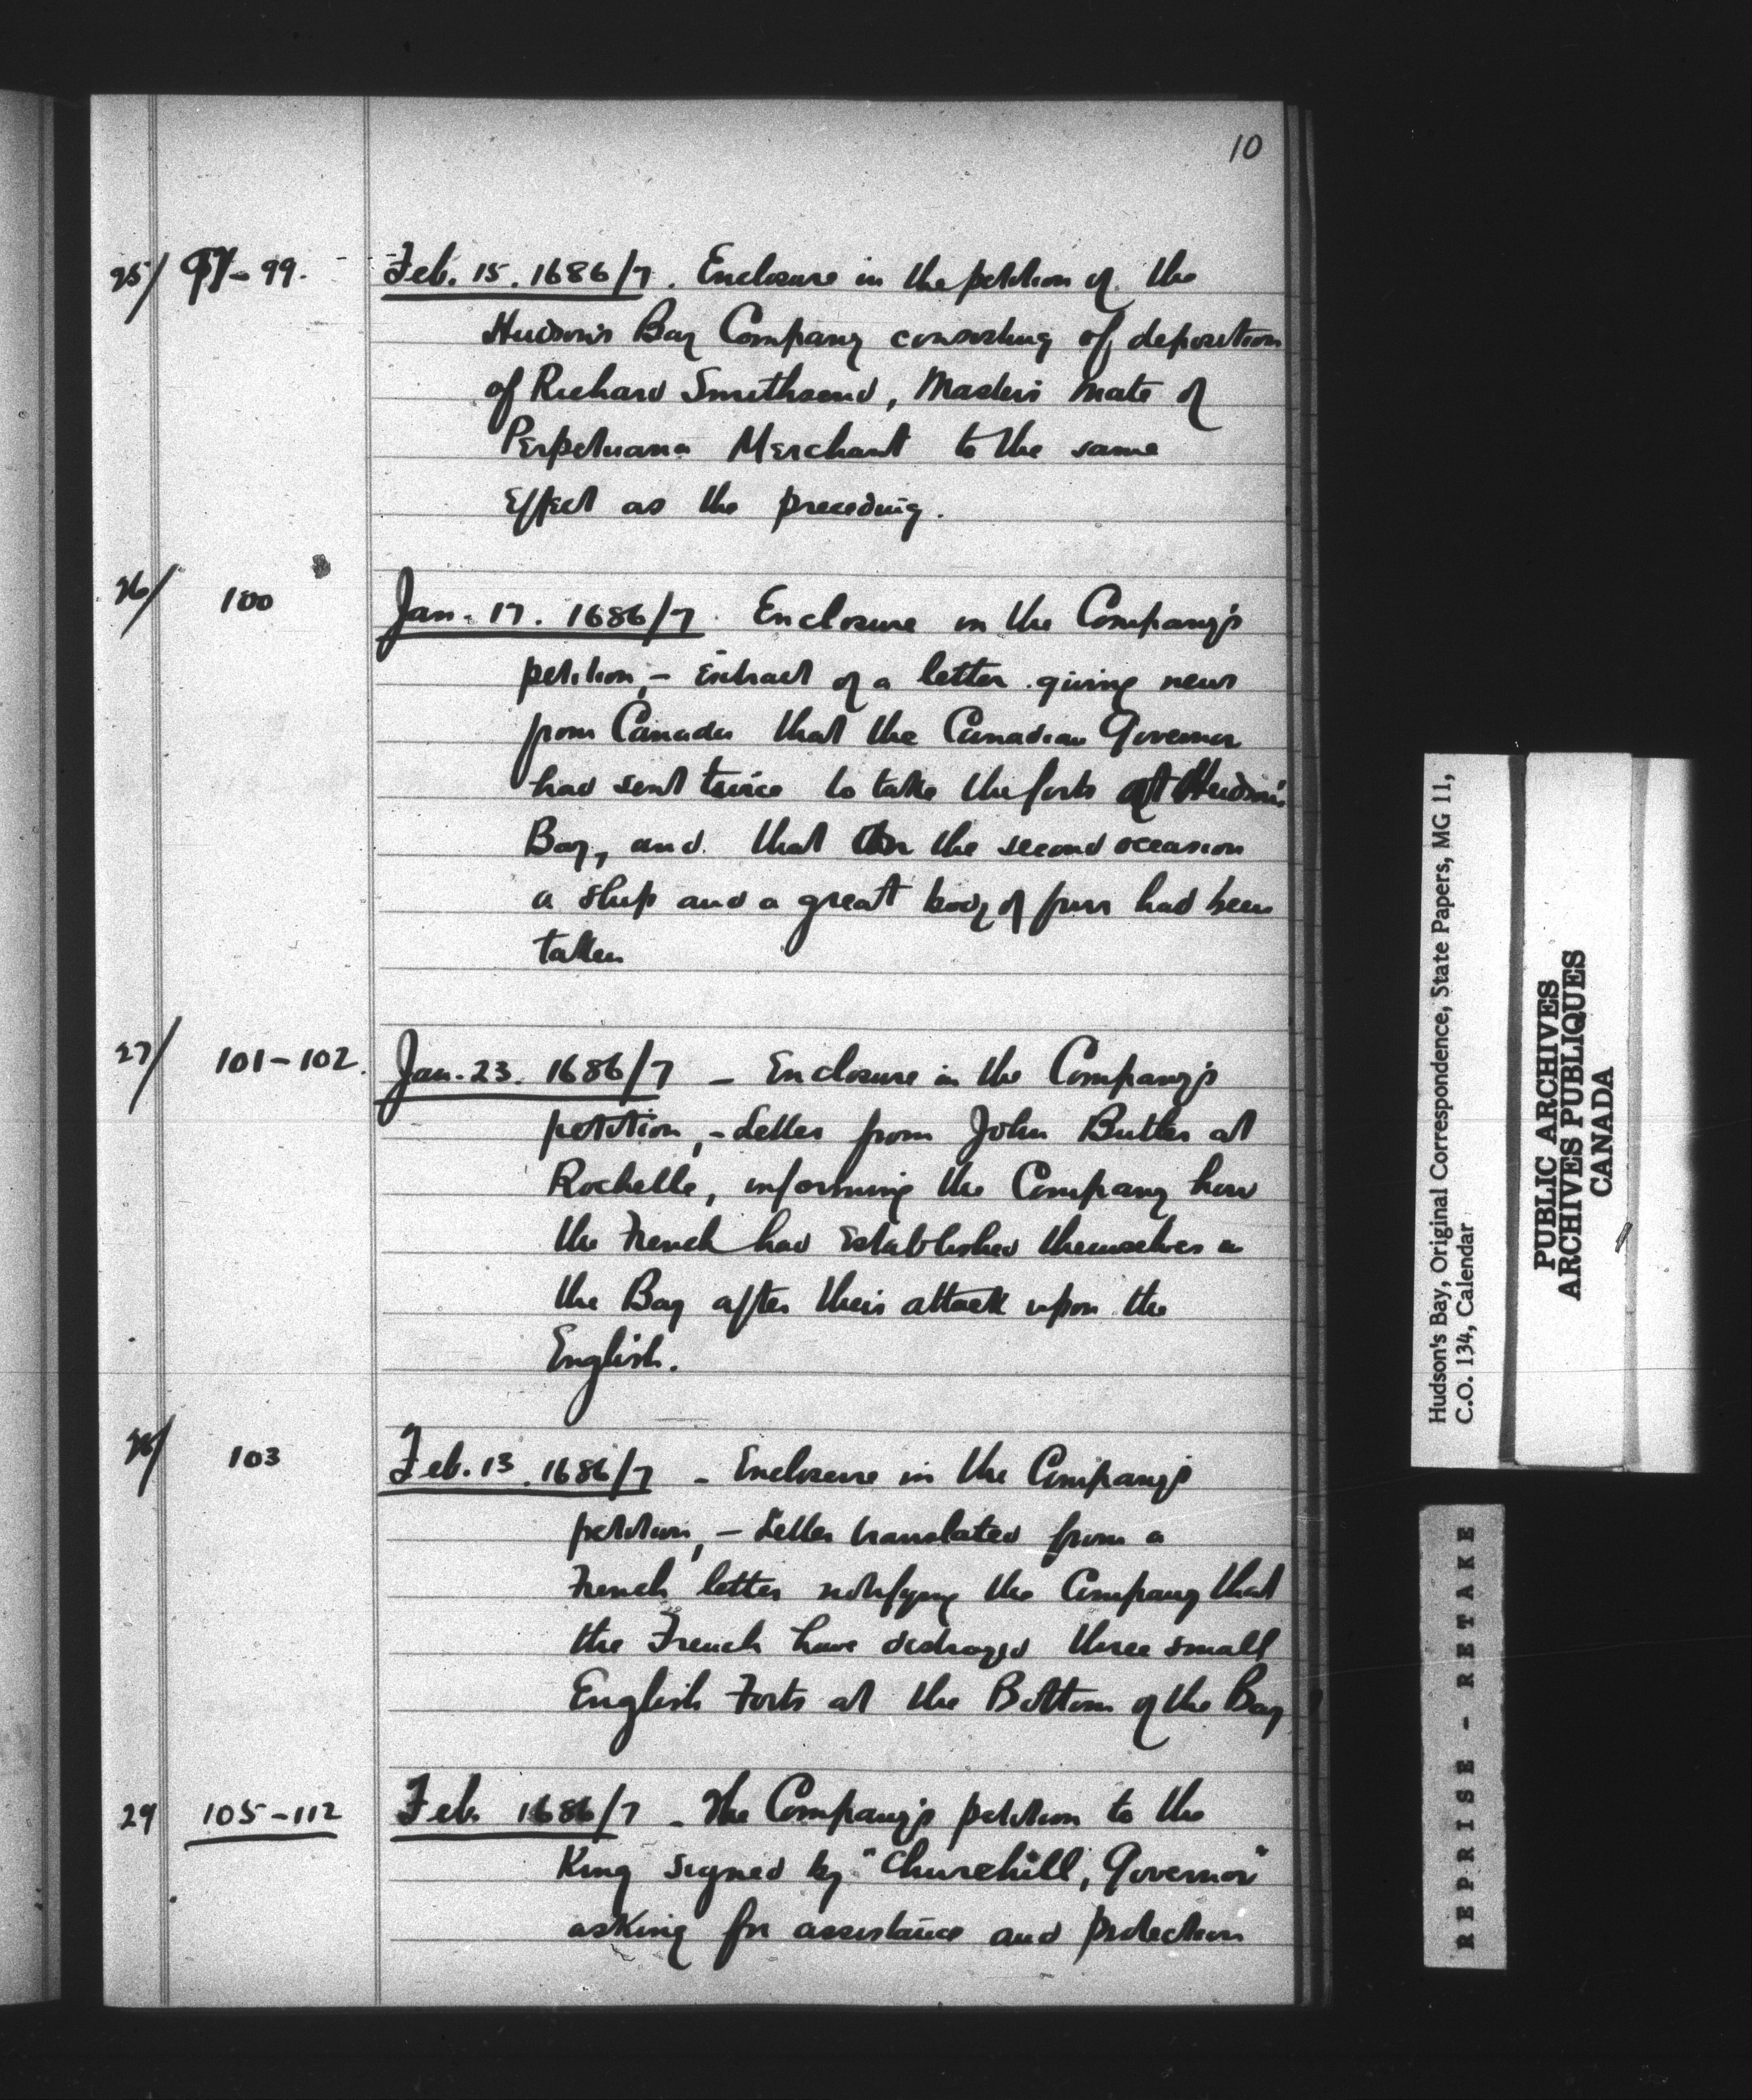 10
25/ 97-99. Feb. 15. 1686/7. Enclosure in the petition of the
Hudson's Bay Company consisting of deposition
of Richard Smithsend, Master's Mate of
Perpetuana Merchant to the same
Effect as the preceding.
26/ 100 Jan. 17. 1686/7. Enclosure in the Company's
petition, - Extract of a letter giving news
from Canada that the Canadian Governor
had sent twice to take the forts at Hudson's
Bay, and that on the second occasion
a ship and a great body of furs had been
taken
27/ 101-102. Jan. 23. 1686/7 - Enclosure in the Company's
petition, - Letter from John Butler at
Rochelle, informing the Company how
the French had Established themselves in
the Bay after their attack upon the
English.
28/ 103 Feb. 13. 1686/7 - Enclosure in the Company's
petition, - Letter translated from a
French letter notifying the Company that
the French have destroyed three small
English Forts at the Bottom of the Bay
29 105-112 Feb. 1686/7 - The Company's petition to the
King signed by "Churchill, Governor"
asking for assistance and protection
Hudson's Bay, Original Correspondence, State Papers, MG 11,
C.O. 134, Calendar
PUBLIC ARCHIVES
ARCHIVES PUBLIQUES
CANADA
REPRISE - RETAKE